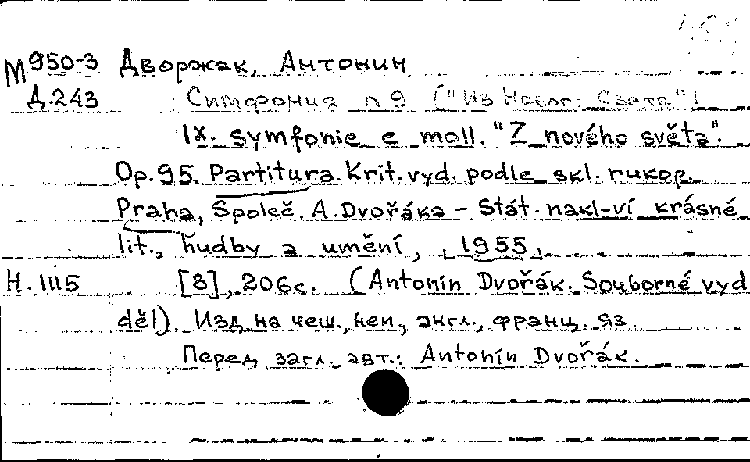 М 950-3 Дворжак, Антонин
Д.243 Симфония n 9 ("Из Нового Света")
IX. symfonie e moll. "Z nového světa".
Op. 95. Partitura. Krit. vyd. podle skl. rukop.
Praha, Společ. A. Dvořáka - Stát. nakl-ví krásné
lit., hudby a umění, 1955,
Н. 1115 [8], 206 с. (Antonín Dvořák. Souborné vyd
děl). Изд. на чеш., нем., англ., франц. яз.
Перед загл. авт.: Antonín Dvořák.